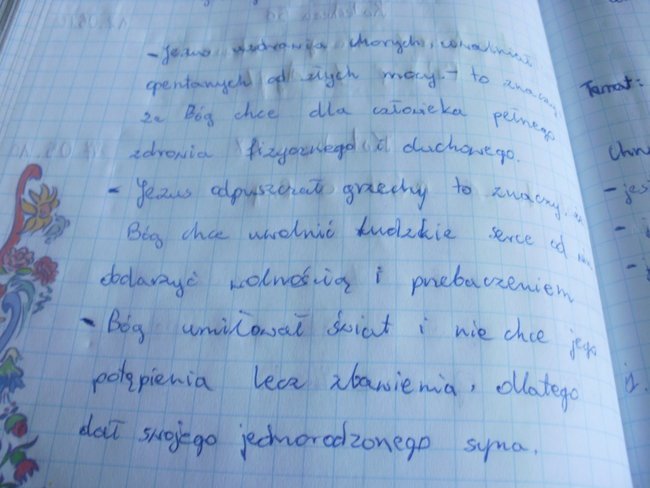 - Jezus uzdrawia chorych, uwalniał
opentanych od złych mocy - to znaczy
że Bóg chce dla człowieka pełnego
zdrowia fizycznego i duchowego.
- Jezus odpuszczał grzechy to znaczy, że
Bóg chce uwolnić ludzkie serce od
obdarzyć wolnością i przebaczeniem
- Bóg umiłował świat i nie chce jego
potępienia lecz zbawienia, dlatego
dał swojego jednorodzonego syna.
Temat:
- jes